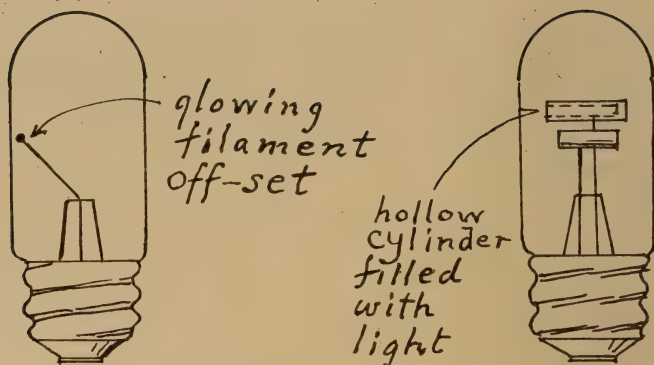 glowing
filament
off-set
hollow
cylinder
filled
with
light